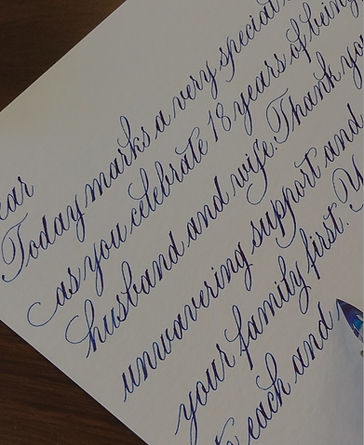 ear
Today marks a very special
as you celebrate 18 years of being
husband and wife. Thank you
unwavering support and
your family first. Y
to each and